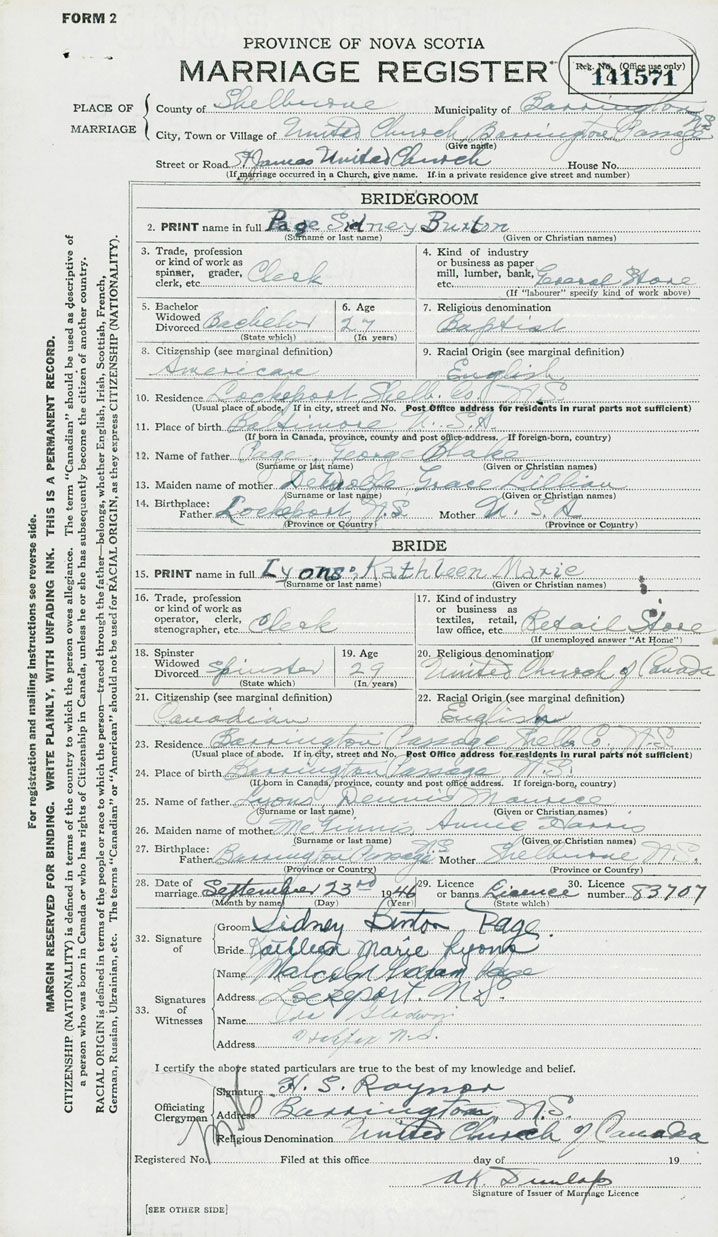 FORM 2
PROVINCE OF NOVA SCOTIA
MARRIAGE REGISTER
Reg. No. (Office use only)
141571
PLACE OF MARRIAGE
County of Shelburne Municipality of Barrington
City, Town or Village of United Church Barrington Passage NS
(Give name)
Street or Road St James United Church House No.
(If marriage occurred in a Church, give name. If in a private residence give street and number)
BRIDEGROOM
2. PRINT name in full Page Sidney Burton
(Surname or last name) (Given or Christian names)
3. Trade, profession or kind of work as spinner, grader, clerk, etc. Clerk
4. Kind of industry or business as paper mill, lumber, bank, etc. General Store
(If "labourer" specify kind of work above)
5. Bachelor Widowed Divorced Bachelor
(State which)
6. Age 27
(In years)
7. Religious denomination Baptist
8. Citizenship (see marginal definition) American
9. Racial Origin (see marginal definition) English
10. Residence Lockeport Shelb. Co. N.S.
(Usual place of abode. If in city, street and No. Post Office address for residents in rural parts not sufficient)
11. Place of birth Baltimore U.S.A.
(If born in Canada, province, county and post office address. If foreign-born, country)
12. Name of father Page, George Blake
(Surname or last name) (Given or Christian names)
13. Maiden name of mother Grace Lillian
(Surname or last name) (Given or Christian names)
14. Birthplace: Father Lockeport, N.S. Mother U.S.A
(Province or Country) (Province or Country)
BRIDE
15. PRINT name in full Lyons, Kathleen Marie
(Surname or last name) (Given or Christian names)
16. Trade, profession or kind of work as operator, clerk, stenographer, etc. Clerk
17. Kind of industry or business as textiles, retail, law office, etc. Retail Store
(If unemployed answer "At Home")
18. Spinster Widowed Divorced Spinster
(State which)
19. Age 29
(In years)
20. Religious denomination United Church of Canada
21. Citizenship (see marginal definition) Canadian
22. Racial Origin (see marginal definition) English
23. Residence Barrington Passage Shelb Co, N.S.
(Usual place of abode. If in city, street and No. Post Office address for residents in rural parts not sufficient)
24. Place of birth Barrington Passage N.S.
(If born in Canada, province, county and post office address. If foreign-born, country)
25. Name of father Lyons, Dennis Maurice
(Surname or last name) (Given or Christian names)
26. Maiden name of mother McGinnis, Annie Harris
(Surname or last name) (Given or Christian names)
27. Birthplace: Father Barrington Passage N.S. Mother Shelburne N.S.
(Province or Country) (Province or Country)
28. Date of marriage September 23rd 1946
(Month by name) (Day) (Year)
29. Licence or banns Licence
(State which)
30. Licence number 83707
32. Signature of
Groom Sidney Burton Page
Bride Kathleen Marie Lyons
33. Signatures of Witnesses
Name Malcolm Page
Address Lockeport. N.S.
Name
Address N.S.
I certify the above stated particulars are true to the best of my knowledge and belief.
Officiating Clergyman
Signature H. S. Raynor
Address Barrington, N.S.
Religious Denomination United Church of Canada
Registered No. Filed at this office day of 19
A.K. Dunlap
Signature of Issuer of Marriage Licence
[SEE OTHER SIDE]
For registration and mailing instructions see reverse side.
MARGIN RESERVED FOR BINDING. WRITE PLAINLY, WITH UNFADING INK. THIS IS A PERMANENT RECORD.
CITIZENSHIP (NATIONALITY) is defined in terms of the country to which the person owes allegiance. The term "Canadian" should be used as descriptive of
a person who was born in Canada or who has rights of Citizenship in Canada, unless he or she has subsequently become the citizen of another country.
RACIAL ORIGIN is defined in terms of the people or race to which the person—traced through the father—belongs, whether English, Irish, Scottish, French,
German, Russian, Ukrainian, etc. The terms "Canadian" or "American" should not be used for RACIAL ORIGIN, as they express CITIZENSHIP (NATIONALITY).